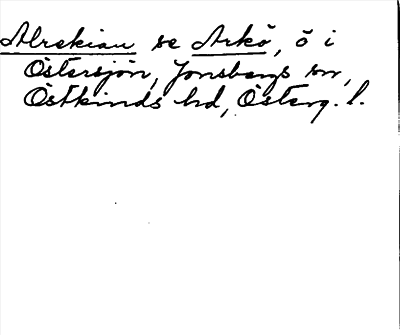 Alrekiau se Arkö, ö i
Östersjön, Jonsbergs sn,
Östkinds hd, Österg. l.